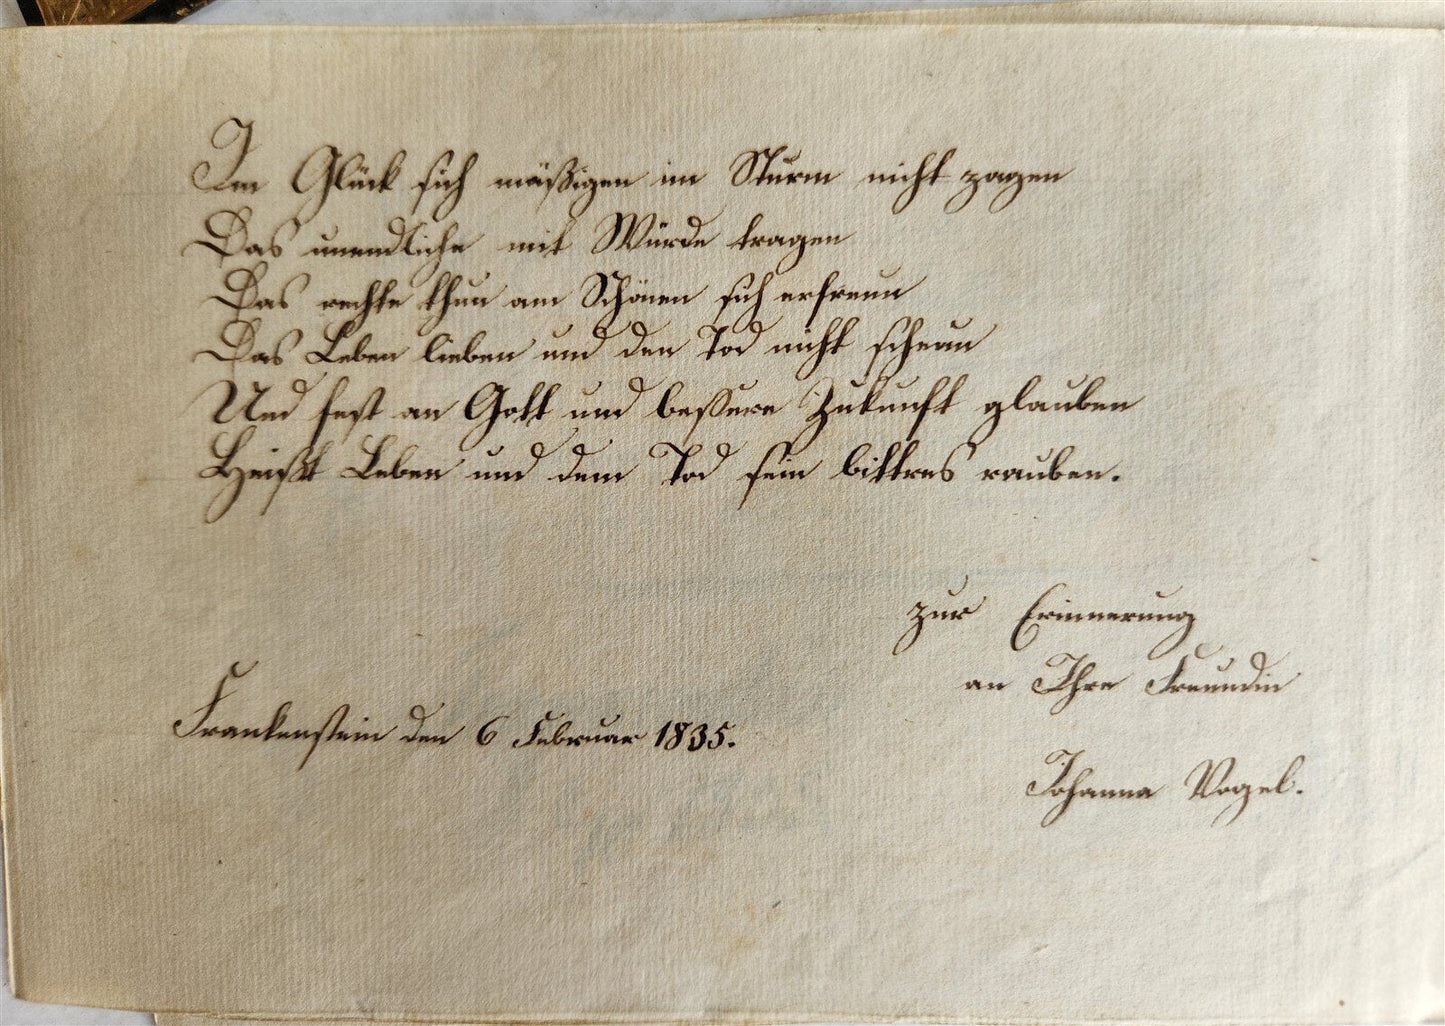 Im Glück sich mäßigen im Sturm nicht zagen
Das unendliche mit Würde tragen
Das rechte thun am Schönen sich erfreun
Das Leben lieben und den Tod nicht scheun
Und fest an Gott und beßere Zukunft glauben
Heißt Leben und dem Tod sein bittres rauben.
zur Erinnerung
an Ihre Freundin
Frankenstein den 6 Februar 1835.
Johanna Vogel.